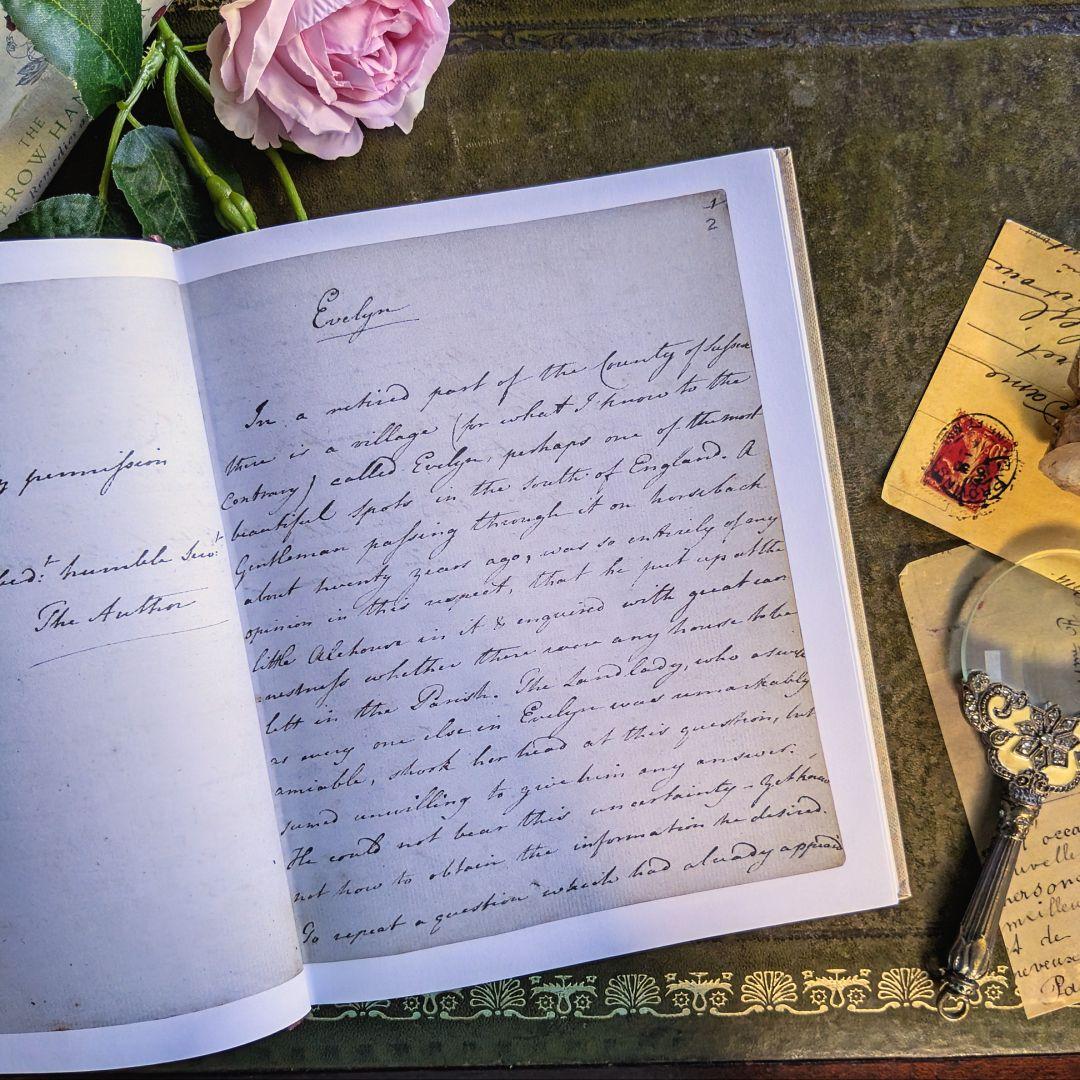 THE
EROW HA
Remedies
y permission
bed.t humble Serv.t
The Author
1
2
Evelyn
In a retired part of the County of Sussex
there is a village (for what I know to the
Contrary) called Evelyn, perhaps one of the most
beautiful spots in the south of England. A
Gentleman passing through it on horseback
about twenty years ago, was so entirely of my
opinion in this respect, that he put up at the
little Alehouse in it & enquired with great ear
nestness whether there were any house to be
lett in the Parish. The Landlady, who as well
as every one else in Evelyn was remarkably
amiable, shook her head at this question, but
seemed unwilling to give him any answer.
He could not bear this uncertainty - yet knew
not how to obtain the information he desired.
To repeat a question which had already appear'd
occa
uvelle
person
meilleu
de